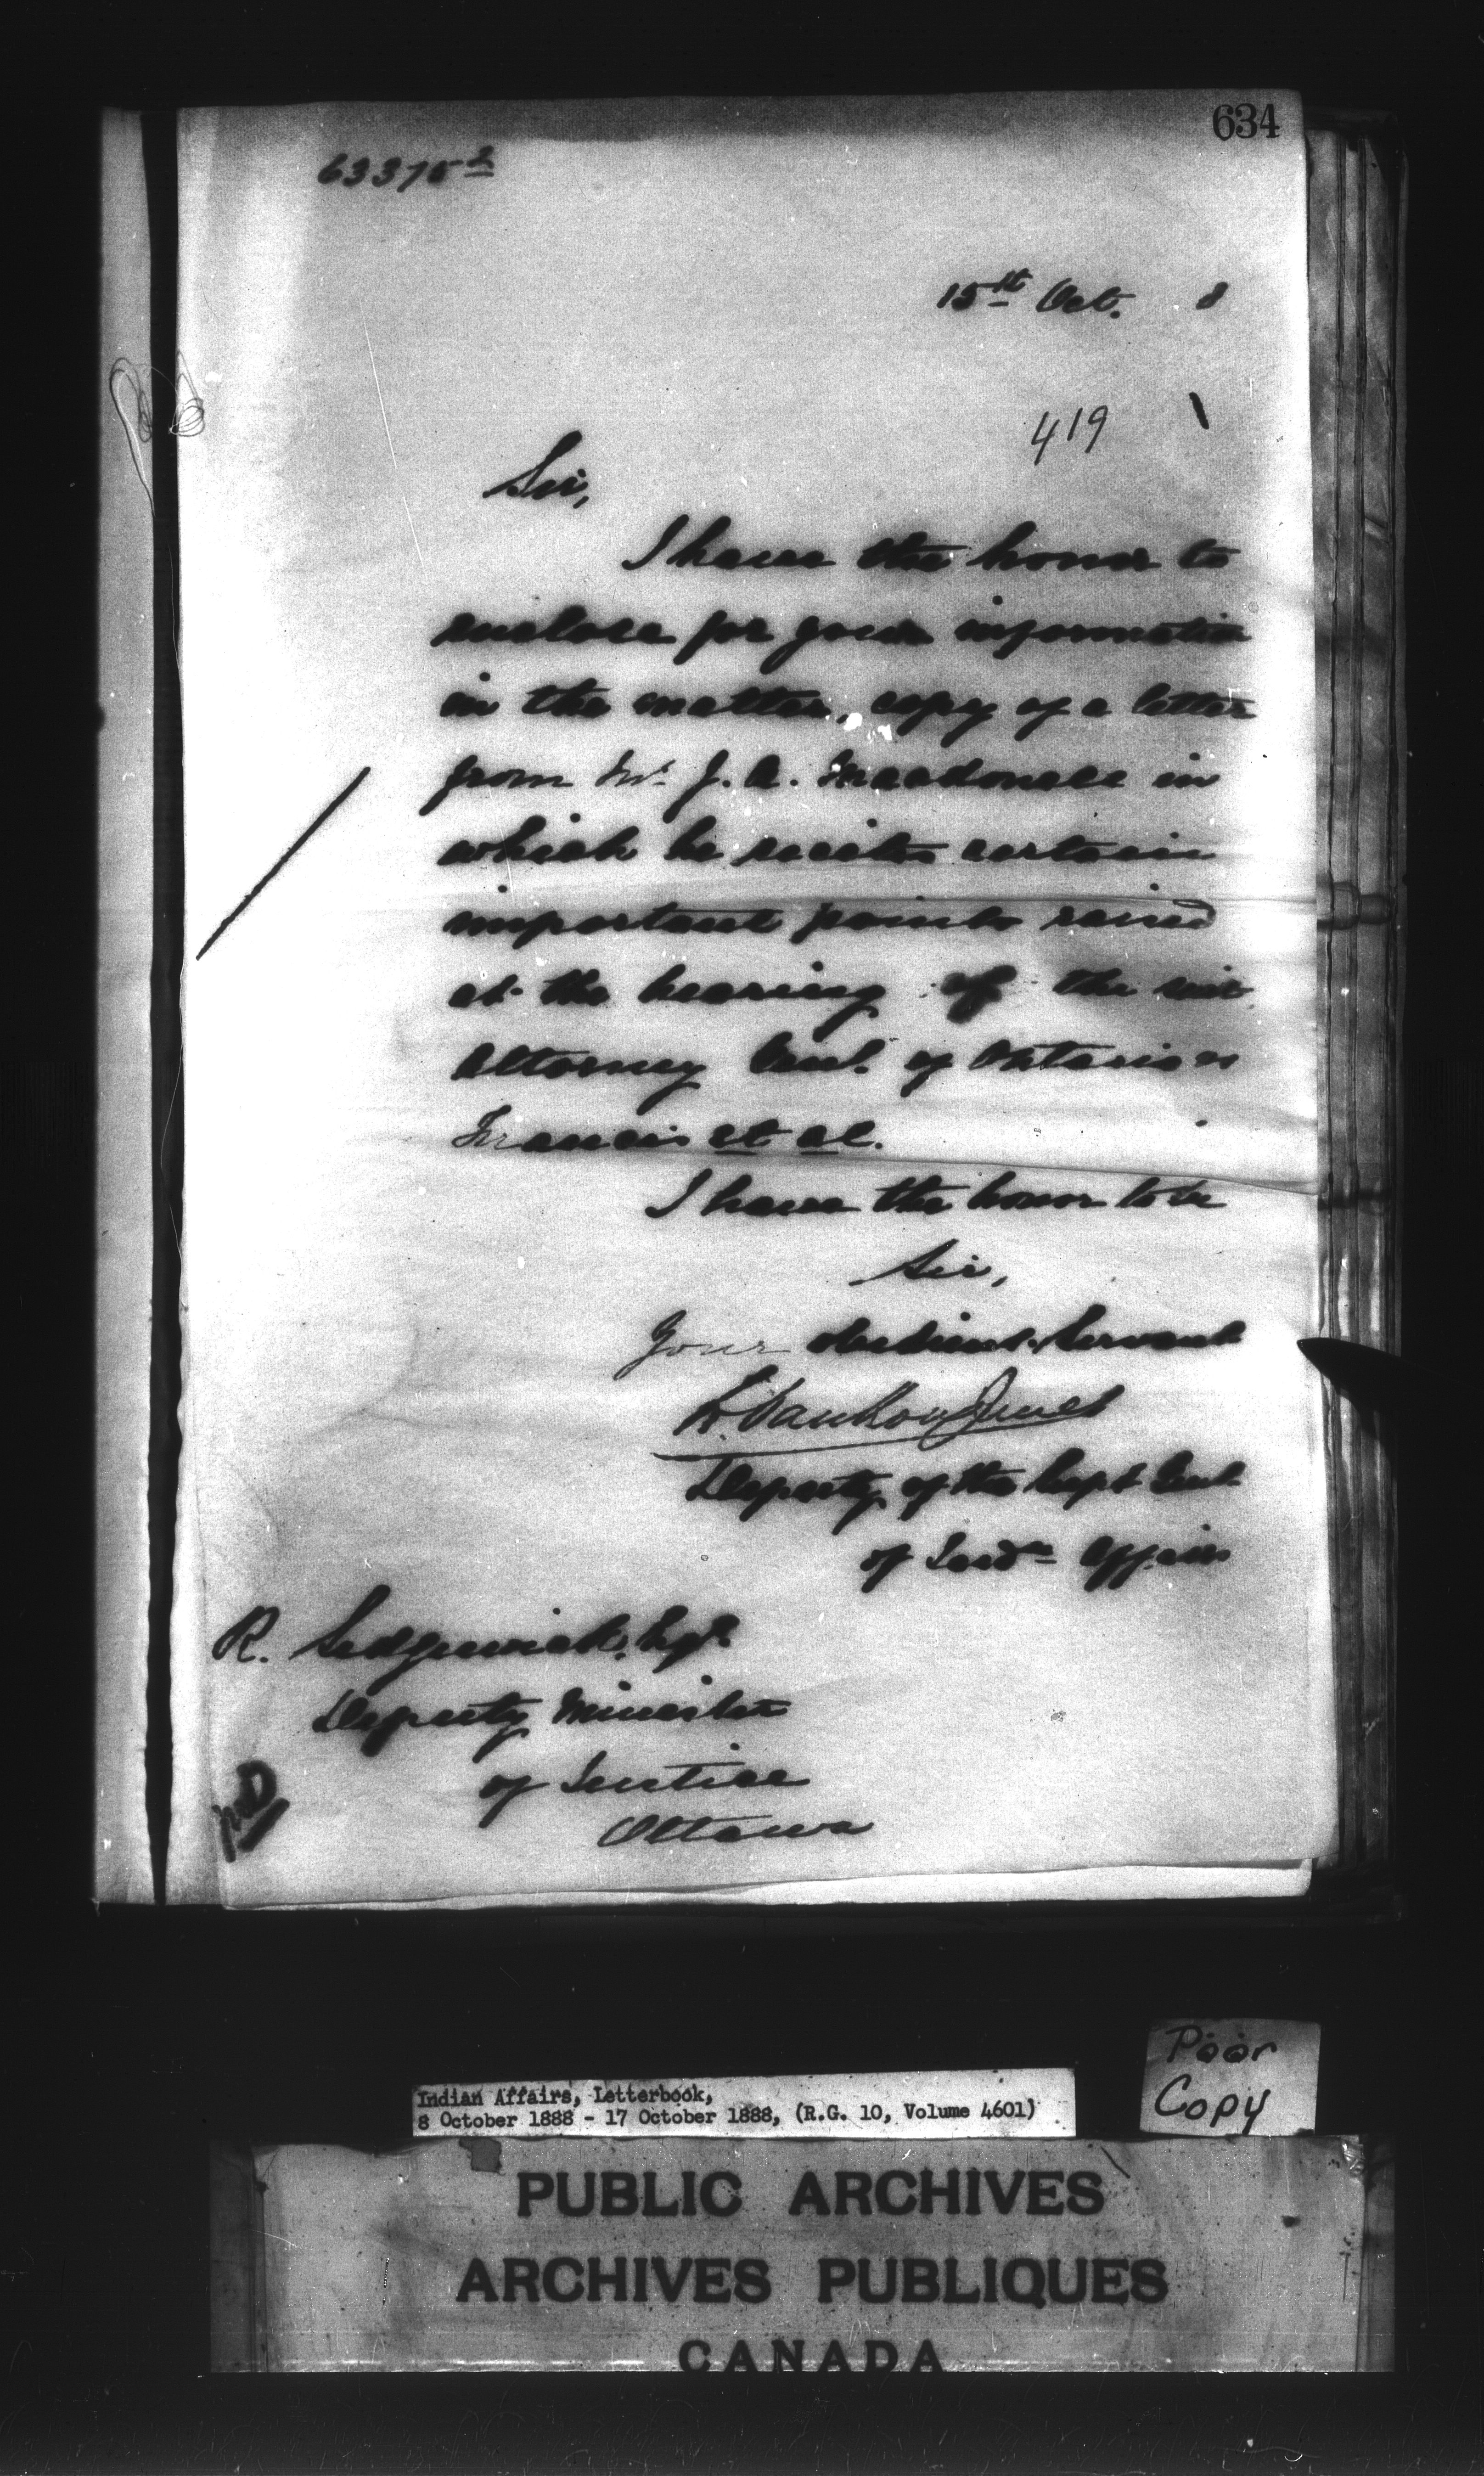 634
63375²
15th Oct. 8
419
Sir,
I have the honor to
enclose for your information
in the matter, copy of a letter
from Mr. J. A. Macdonell in
which he recites certain
important points raised
at the hearing of the suit
Attorney Genl. of Ontario vs
Francis et al.
I have the honor to be
Sir,
Your obedient Servant
L. Vankoughnet
Deputy of the Supt Genl.
of Indn Affairs
R. Sedgewick, Esqr.
Deputy Minister
of Justice
Ottawa
Poor
Copy
Indian Affairs, Letterbook,
8 October 1888 - 17 October 1888, (R.G. 10, Volume 4601)
PUBLIC ARCHIVES
ARCHIVES PUBLIQUES
CANADA